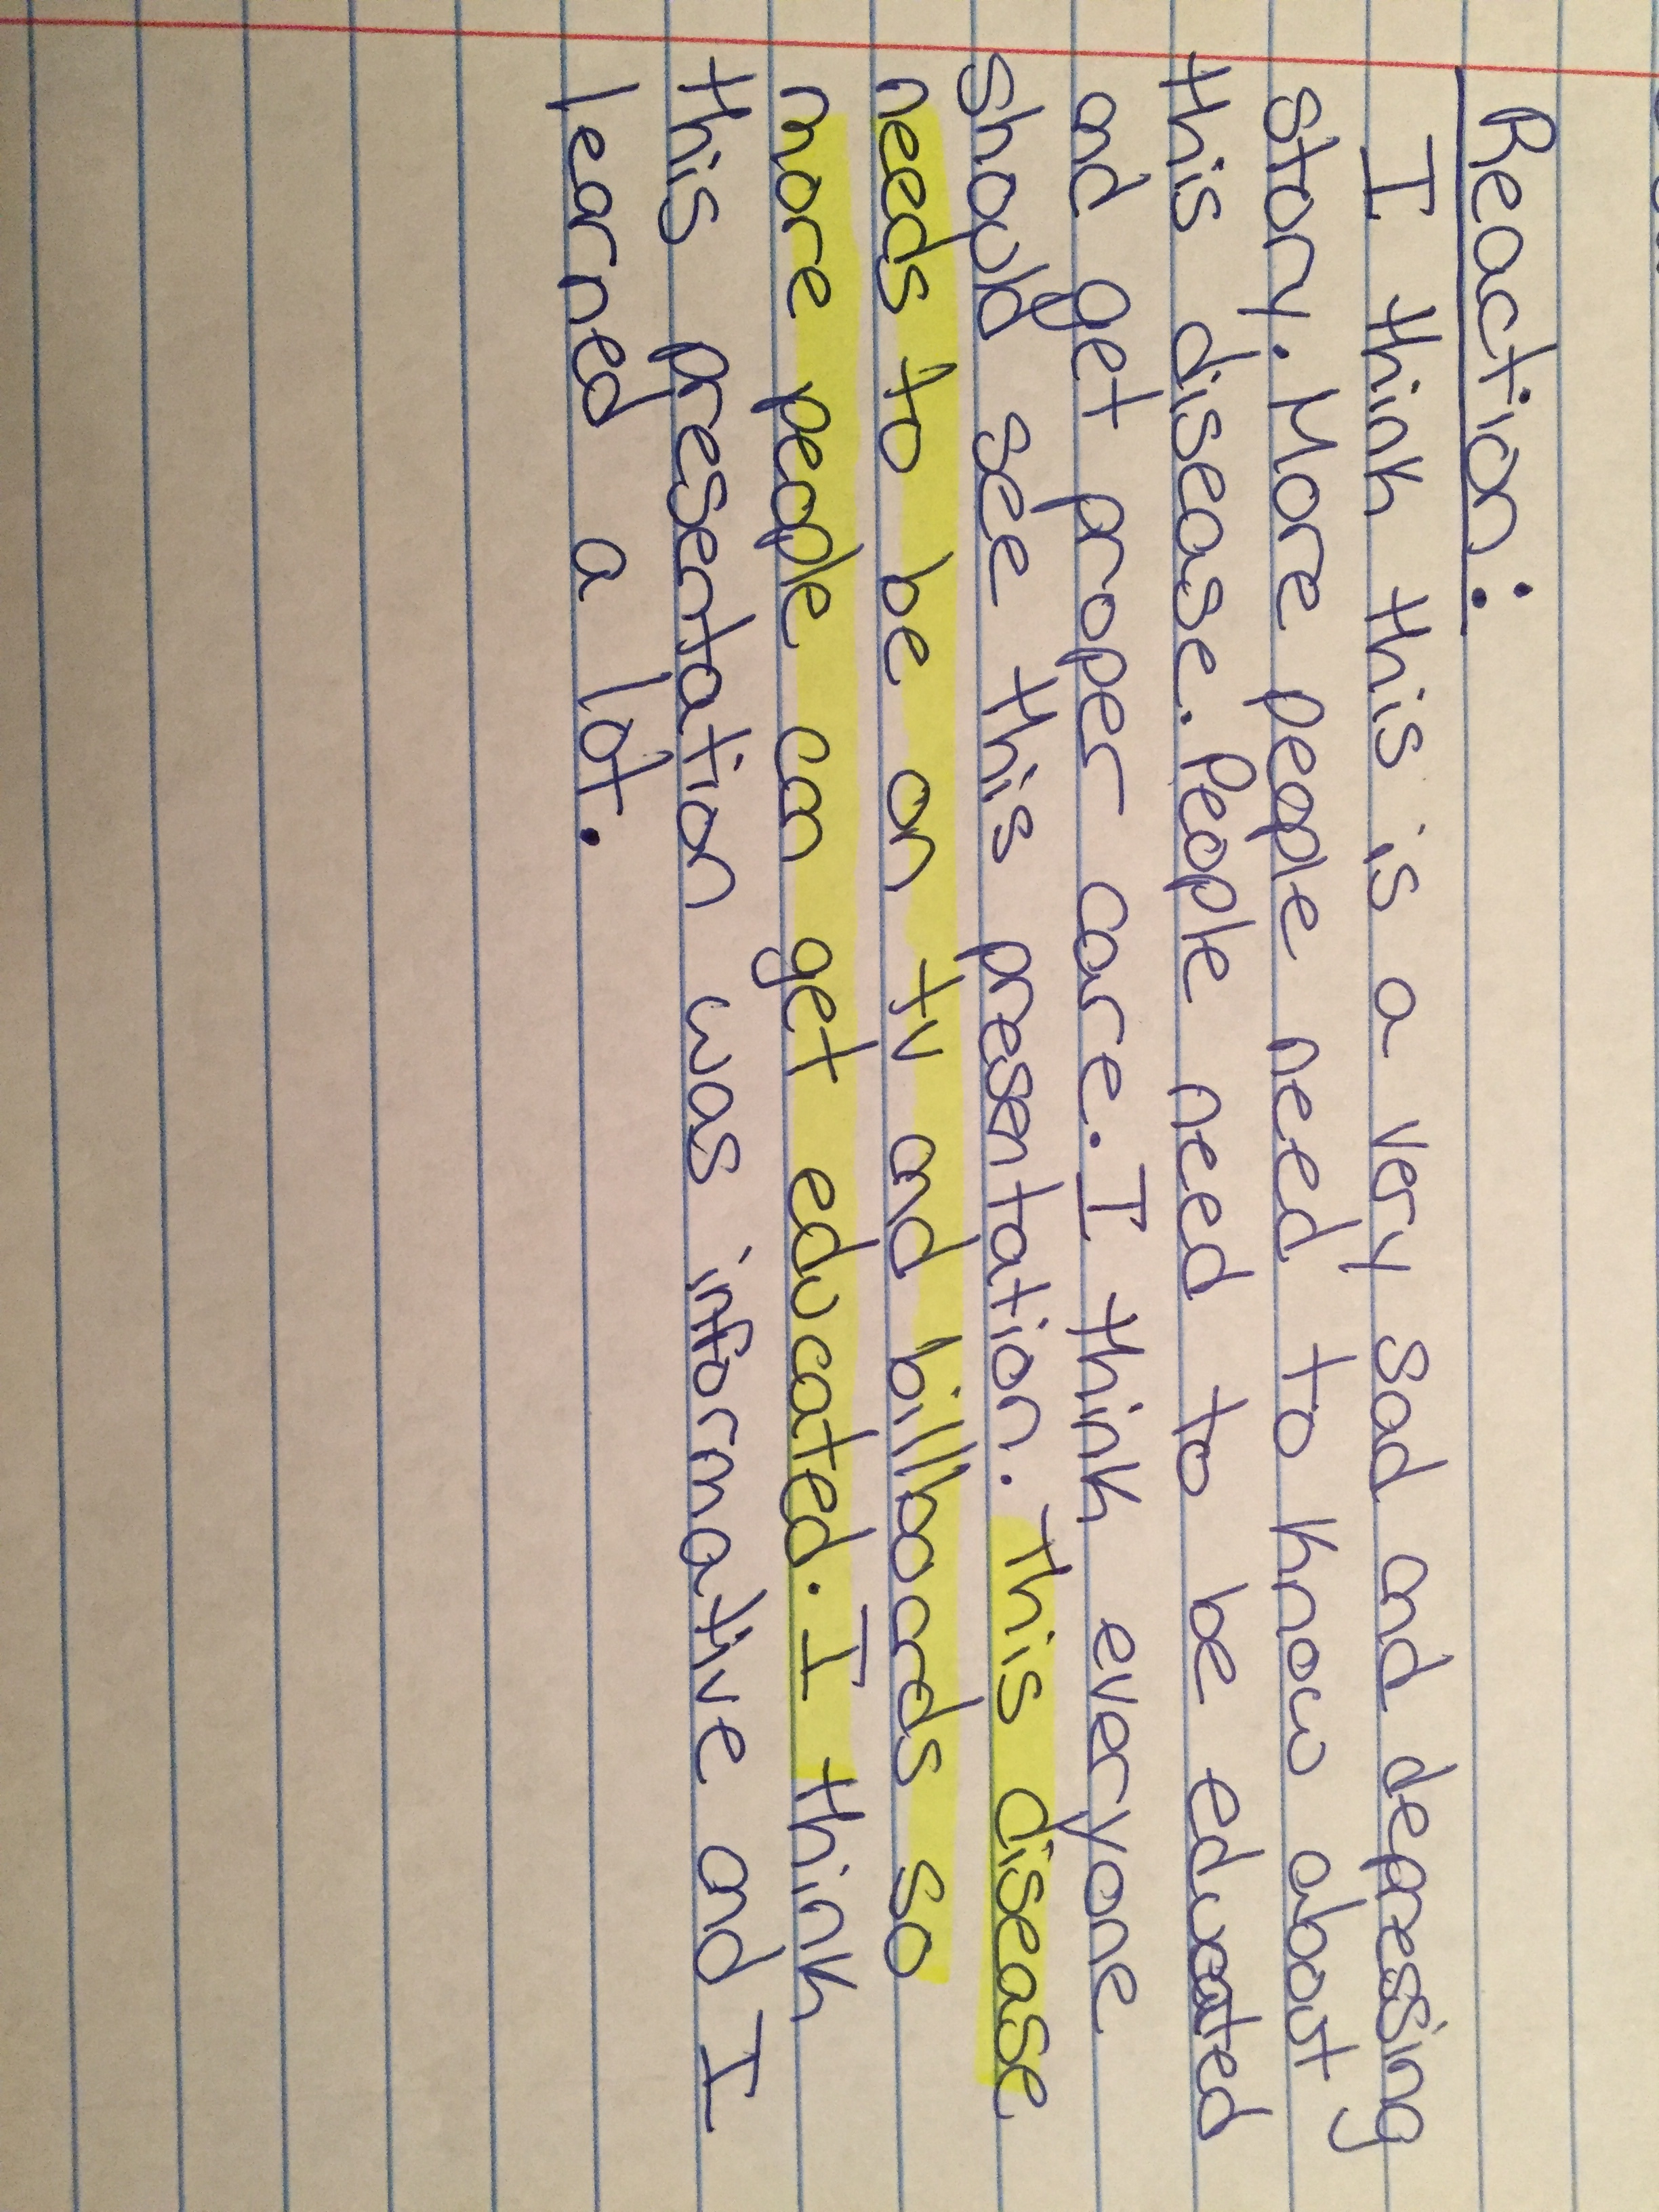 Reaction:
I think this is a very sad and depressing
story. More people need to know about
this disease. People need to be educated
and get proper care. I think everyone
should see this presentation. This disease
needs to be on tv and billboards so
more people can get educated. I think
this presentation was informative and I
learned a lot.